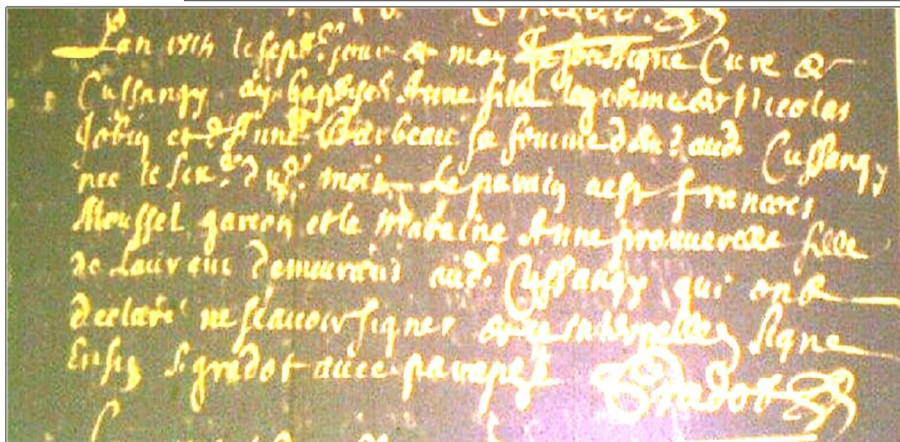 Lan le sept.e jour de may Je soussigne Cure de
Cussangy ay baptisé Anne fille legitime de Nicolas
Jobin et d'Anne Barbeau sa femme dem.t aud. Cussangy
nee le six.e du mois Le parain a est francois
Moussel garcon et la Maraine Anne fille
de Laurent demeurant aud. Cussangy qui ont
declaré ne scauoir signer de ce Interpellez Signe
Enfin Gradot auec paraphe
Gradot